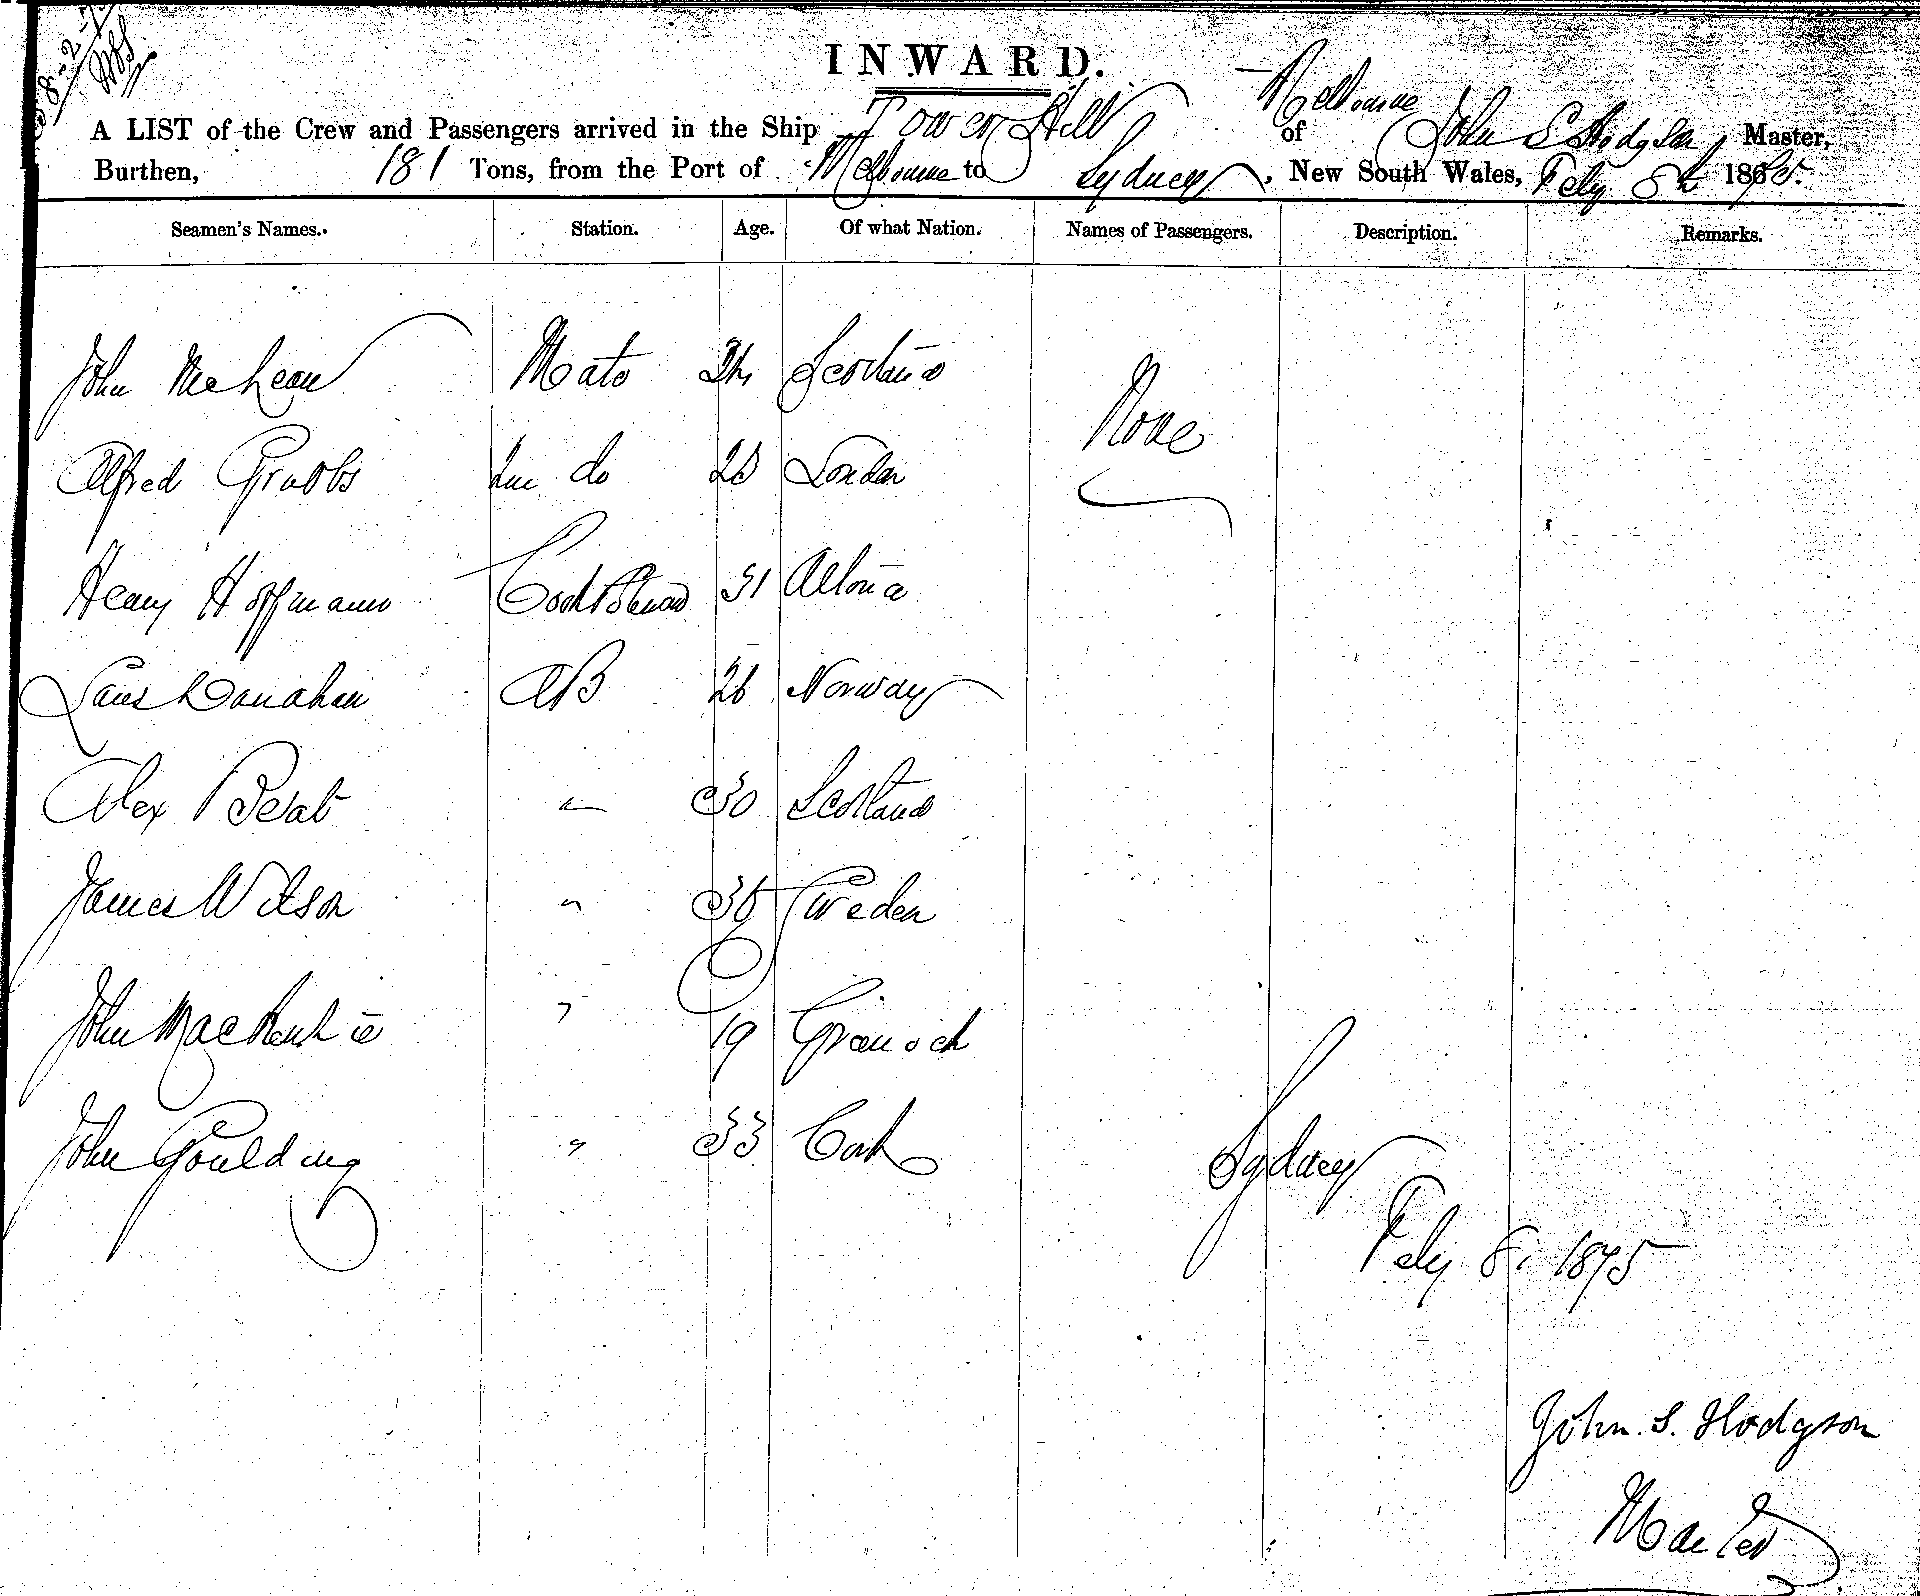 8-2-
INWARD.
A LIST of the Crew and Passengers arrived in the Ship Tower Hill of Melbourne John S Hodgson, Master,
Burthen, 181 Tons, from the Port of Melbourne to Sydney, New South Wales, Feby 8th 1875.
Seamen's Names. Station. Age. Of what Nation. Names of Passengers. Description. Remarks.
John McLean Mate 24 Scotland None
Alfred Grubbs do 28 London
Henry Hoffmann Cook & Steward 31 Altona
Donahan AB 26 Norway
Alex " 30 Scotland
James Wilson " 36 Sweden
John MacKenzie " 19 Greenock
John Goulding " 33 Cork
Sydney
Feby 8, 1875
John. S. Hodgson
Master